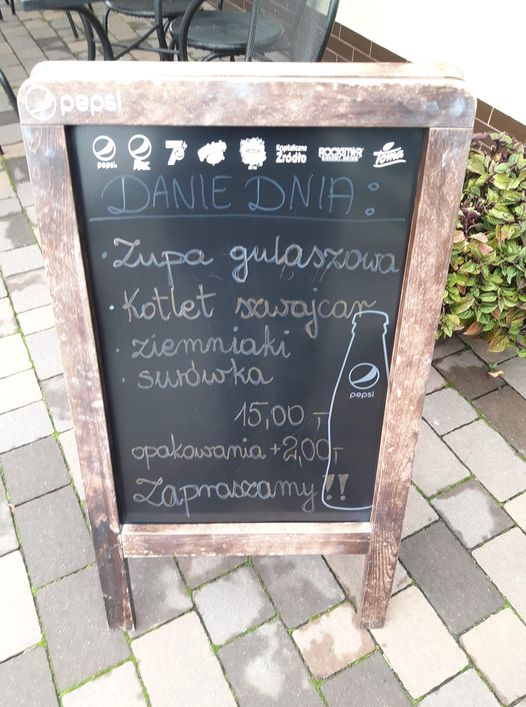 pepsi
pepsi. MAX. 7UP Krystaliczne Źródło ROCKSTAR ENERGY DRINK Toma
DANIE DNIA:
· Zupa gulaszowa
· Kotlet szwajcar
· ziemniaki
· surówka
pepsi
15,00,-
opakowania +2,00,-
Zapraszamy!!